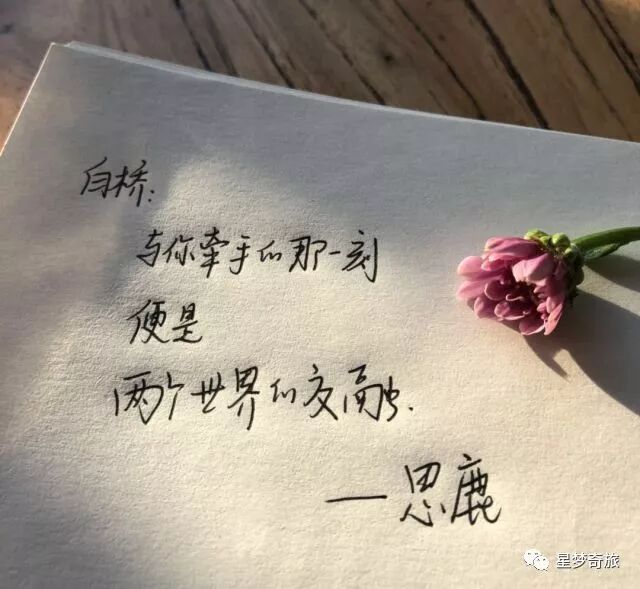 白桥:
与你牵手的那一刻
便是
两个世界的交融.
—思鹿
星梦奇旅